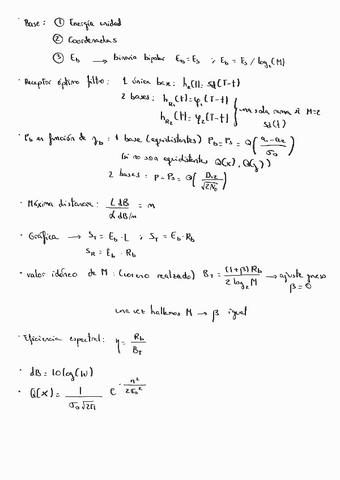 · Base: ① Energía unidad
② Coordenadas
③ E_b → binaria bipolar E_b = E_s ; E_b = E_s / log₂(M)
· Receptor óptimo filtro: 1 única base: h_r(t) = s(T-t)
2 bases: h_R1(t) = φ₁(T-t)
h_R2(t) = φ₂(T-t) } una sola rama si M=2
s_d(t)
· P_b en función de γ_b: 1 base (equidistantes) P_b = P_s = Q((a₁-a₂)/σ_o)
(si no son equidistantes Q(x), Q(y))
2 bases: P - P_s = Q(D₁₂/√(2N_o))
· Máxima distancia: L dB / α dB/m = m
· Gráfica → S_T = E_b · L ; S_T = E_b · R_b
S_R = E_b · R_b
· valor idóneo de M: (coseno realzado) B_T = (1+β) R_b / 2 log₂ M → ajuste grueso
β = 0
una vez hallemos M → β igual
· Eficiencia espectral: η = R_b / B_T
· dB = 10 log(W)
· Q(x) = 1/(σ_o √2π) e^(-n²/2σ_o²)